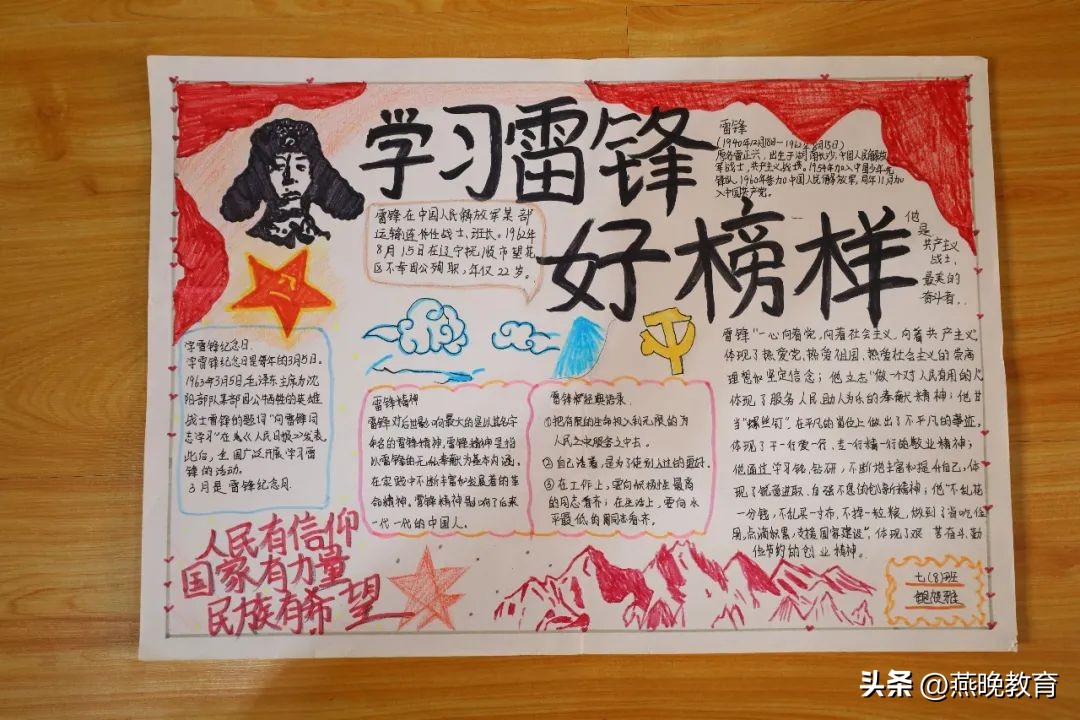 学习雷锋
好榜样
雷锋
(1940年12月18日—1962年8月15日)
原名雷正兴,出生于湖南长沙,中国人民解放
军战士,共产主义战士。1954年加入中国少年先
锋队,1960年参加中国人民解放军,同年11月加
入中国共产党。
他
是
共产主义
战士,
最美的
奋斗者..
雷锋在中国人民解放军某部
运输连任战士,班长。1962年
8月15日在辽宁抚顺市望花
区不幸因公殉职,年仅22岁。
学雷锋纪念日
学雷锋纪念日是每年的3月5日。
1963年3月5日,毛泽东主席为沈
阳部队某部因公牺牲的英雄
战士雷锋的题词“向雷锋同
志学习”在《人民日报》发表
此后,全国广泛开展学习雷
锋的活动。
3月是雷锋纪念月
雷锋精神
雷锋对后世影响最大的是以其名字
命名的雷锋精神,雷锋精神是指
以雷锋的无私奉献为基本内涵。
在实践中不断丰富和发展着的革
命精神。雷锋精神影响了后来
一代一代的中国人。
雷锋经典语录
①把有限的生命投入到无限的为
人民之服务之中去。
②自己活着,是为了使别人过的更好。
③在工作上,要向积极性最高
的同志看齐;在生活上,要向水
平最低的同志看齐。
雷锋“一心向着党,向着社会主义,向着共产主义”
体现了热爱党,热爱祖国,热爱社会主义的崇高
理想和坚定信念;他立志“做一个对人民有用的人”
体现了服务人民,助人为乐的奉献精神;他甘
当“螺丝钉”,在平凡的岗位上做出了不平凡的事迹,
体现了干一行爱一行,专一行精一行的敬业精神;
他通过学习钻研,不断增丰富和提升自己,体
现了锐意进取,自强不息的创新精神;他“不乱花
一分钱,不乱买一寸布,不掉一粒粮,做到了省吃俭
用,点滴积累,支援国家建设”,体现了艰苦奋斗,勤
俭节约的创业精神。
人民有信仰
国家有力量
民族有希望
七(8)班
头条 @燕晚教育